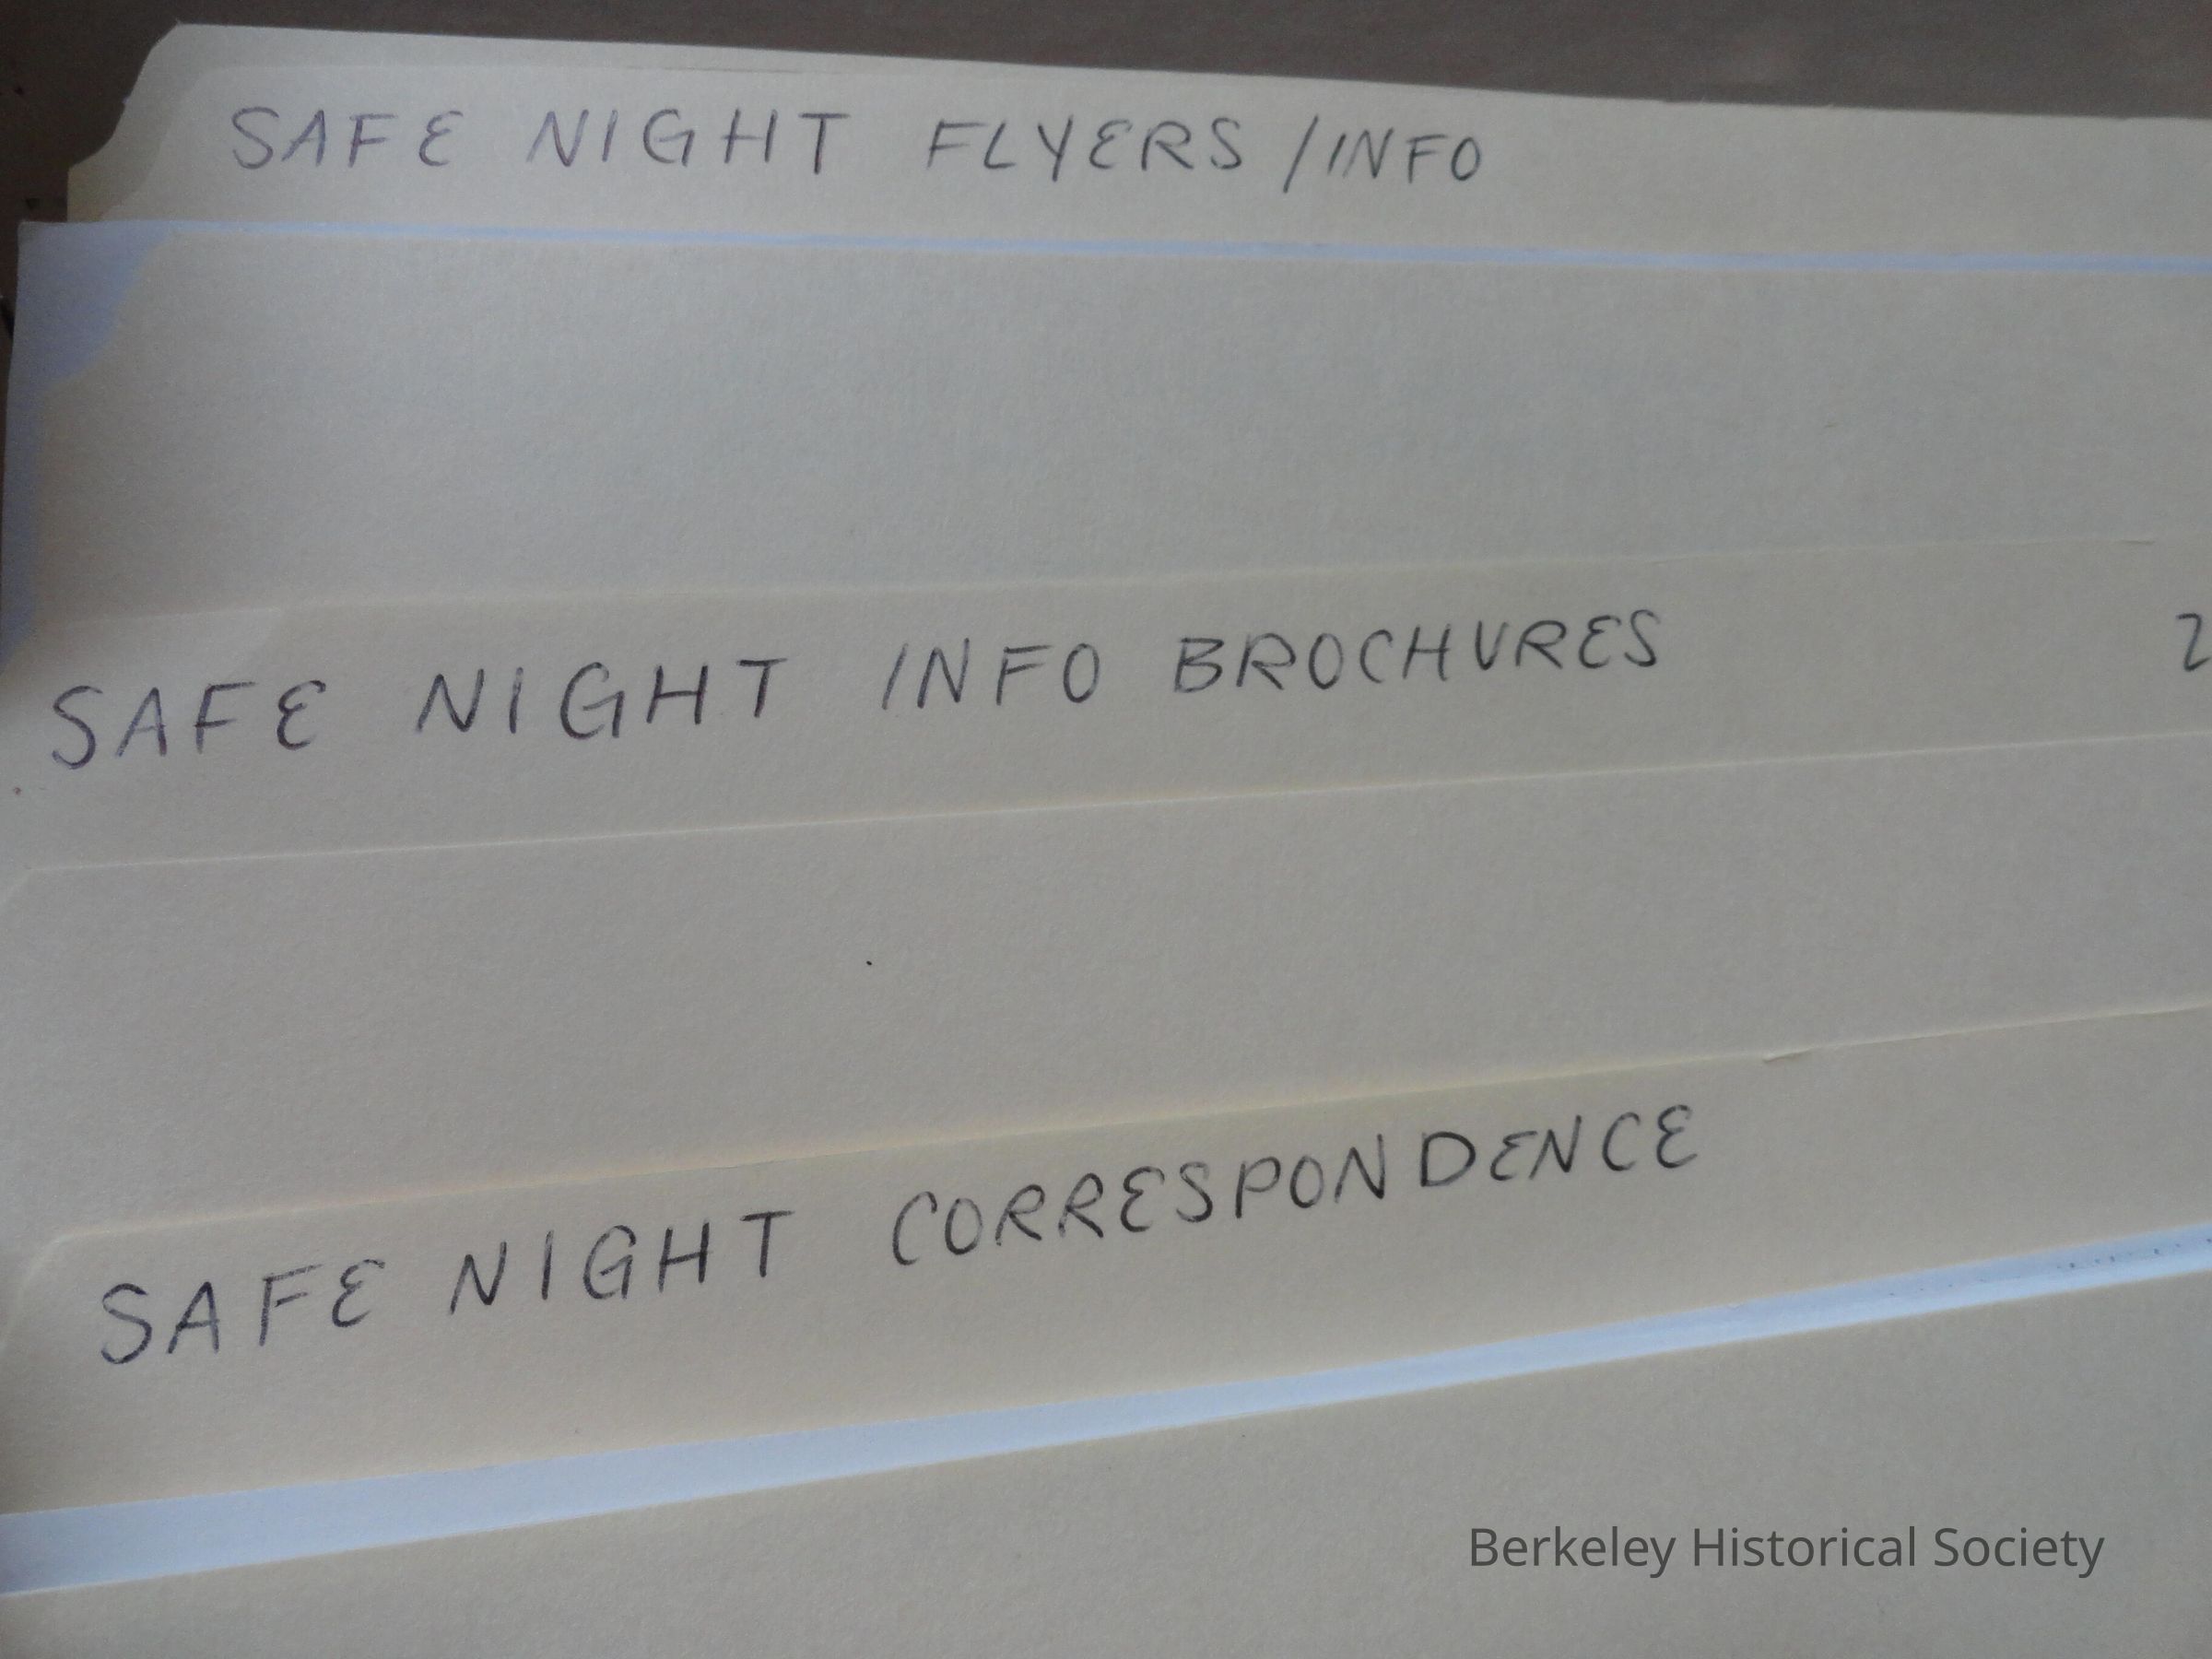 SAFE NIGHT FLYERS/INFO
SAFE NIGHT INFO BROCHURES 2
SAFE NIGHT CORRESPONDENCE
Berkeley Historical Society